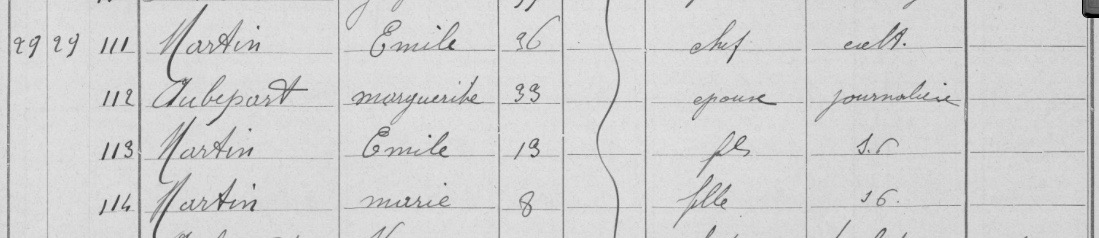 29 29 111 Martin Emile 36 chef cult.
112 Aubepart marguerite 33 epouse journalière
113 Martin Emile 13 fils s.p
114 Martin marie 8 fille s p.